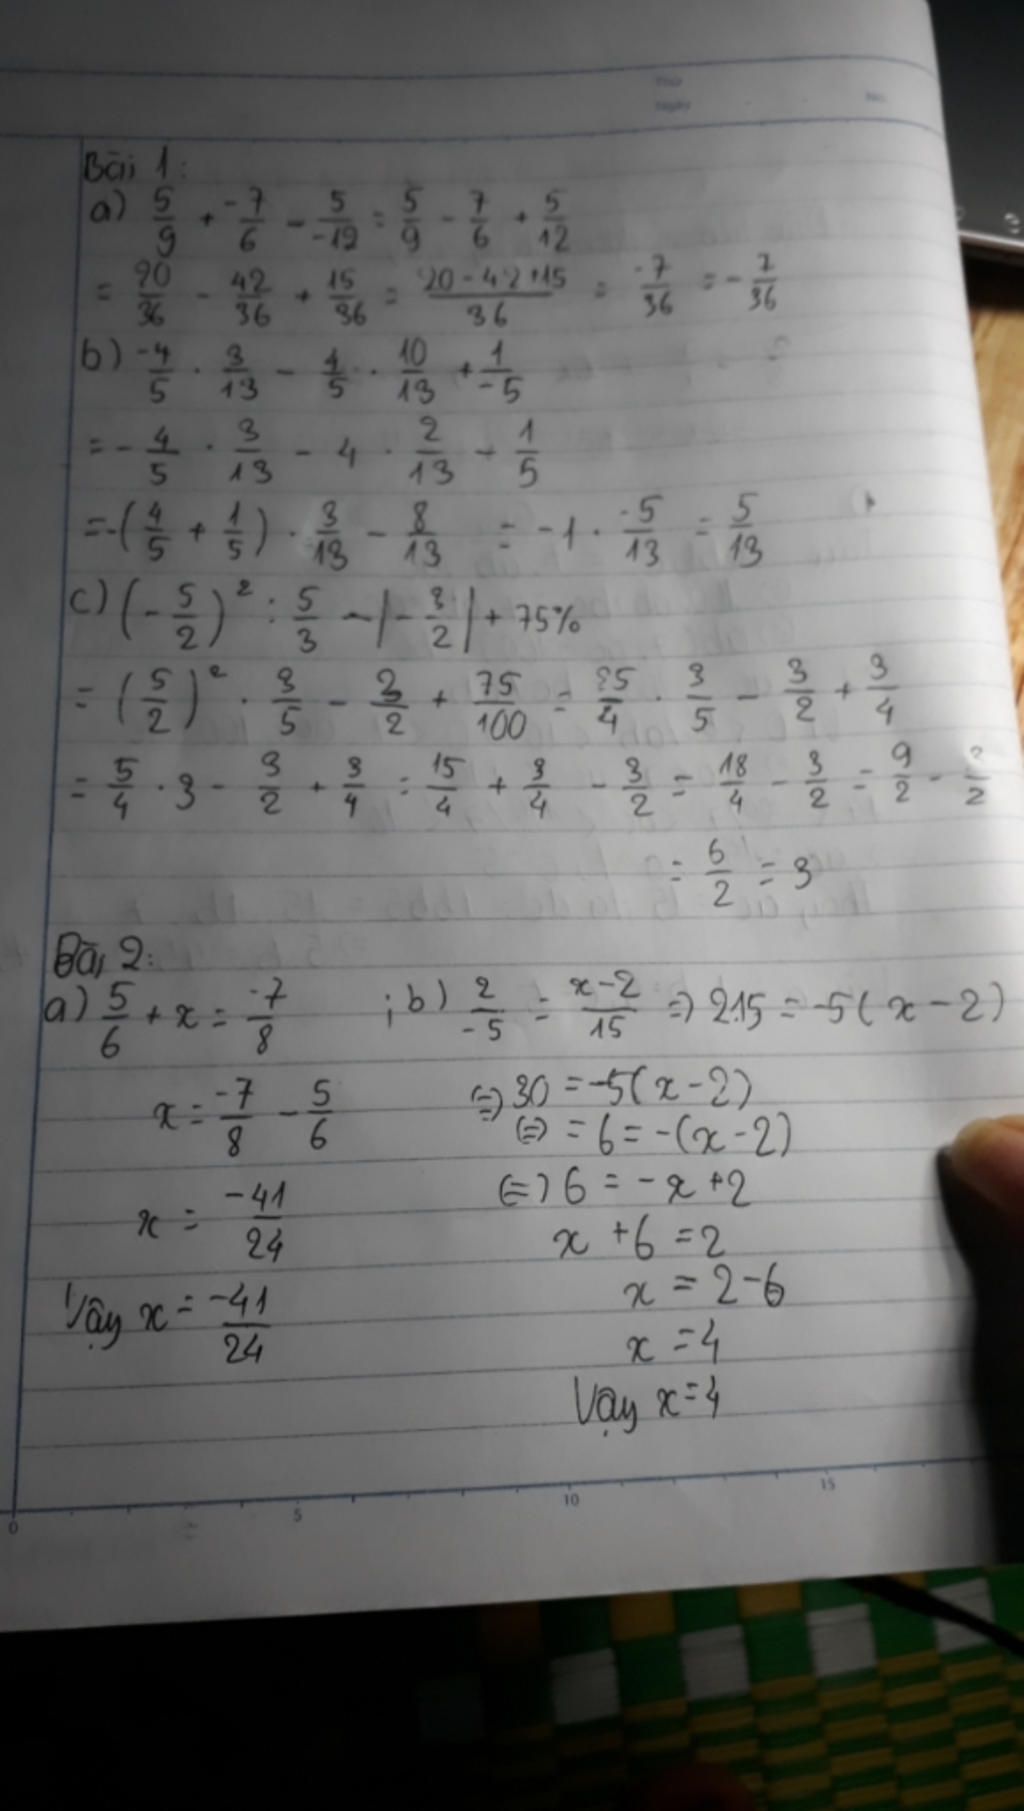 Thứ
Ngày No.
Bài 1:
a) 5/9 + -7/6 - 5/-12 = 5/9 - 7/6 + 5/12
= 20/36 - 42/36 + 15/36 = 20-42+15/36 = -7/36 = -7/36
b) -4/5 . 3/13 - 4/5 . 10/13 + 1/-5
= -4/5 . 3/13 - 4 . 2/13 - 1/5
= -(4/5 + 1/5) . 3/13 - 8/13 = -1 . -5/13 = 5/13
c) (-5/2)² : 5/3 - |-3/2| + 75%
= (5/2)² . 3/5 - 3/2 + 75/100 = 25/4 . 3/5 - 3/2 + 3/4
= 5/4 . 3 - 3/2 + 3/4 = 15/4 + 3/4 - 3/2 = 18/4 - 3/2 = 9/2 - 3/2
= 6/2 = 3
Bài 2:
a) 5/6 + x = -7/8 ; b) 2/-5 = x-2/15 => 2.15 = -5(x-2)
x = -7/8 - 5/6
x = -41/24
Vậy x = -41/24
(=) 30 = -5(x-2)
(=) = 6 = -(x-2)
(=) 6 = -x+2
x + 6 = 2
x = 2-6
x = 4
Vậy x = 4
0 5 10 15